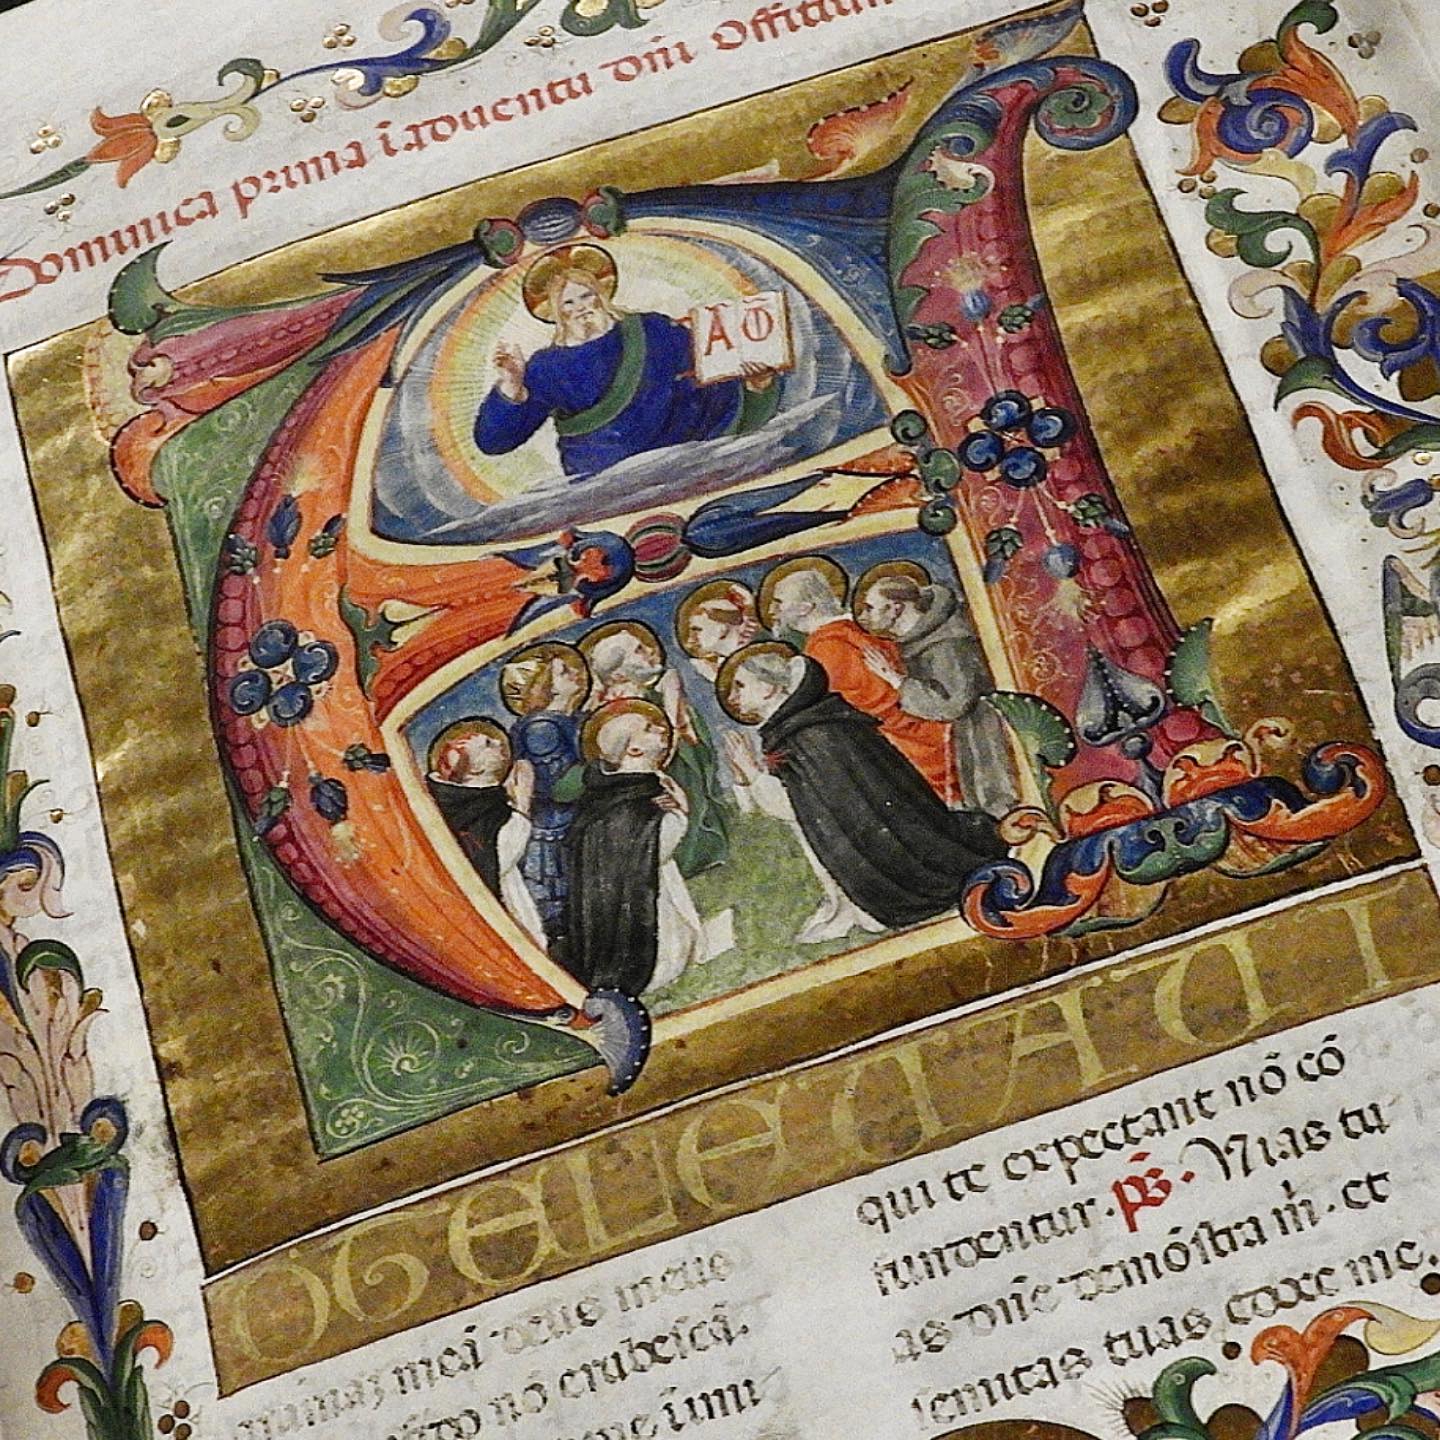 Dominica prima i̅ aduentu dn̅i Offitium
A O̅
D TE LEUAUI
animaʒ mea̅ deus meus
no̅ erubesca̅.
me i̅imi
qui te expectant no̅ co̅
fundentur. p̅s. Vias tu
as dn̅e demo̅stra m̅. et
semitas tuas edoce me.